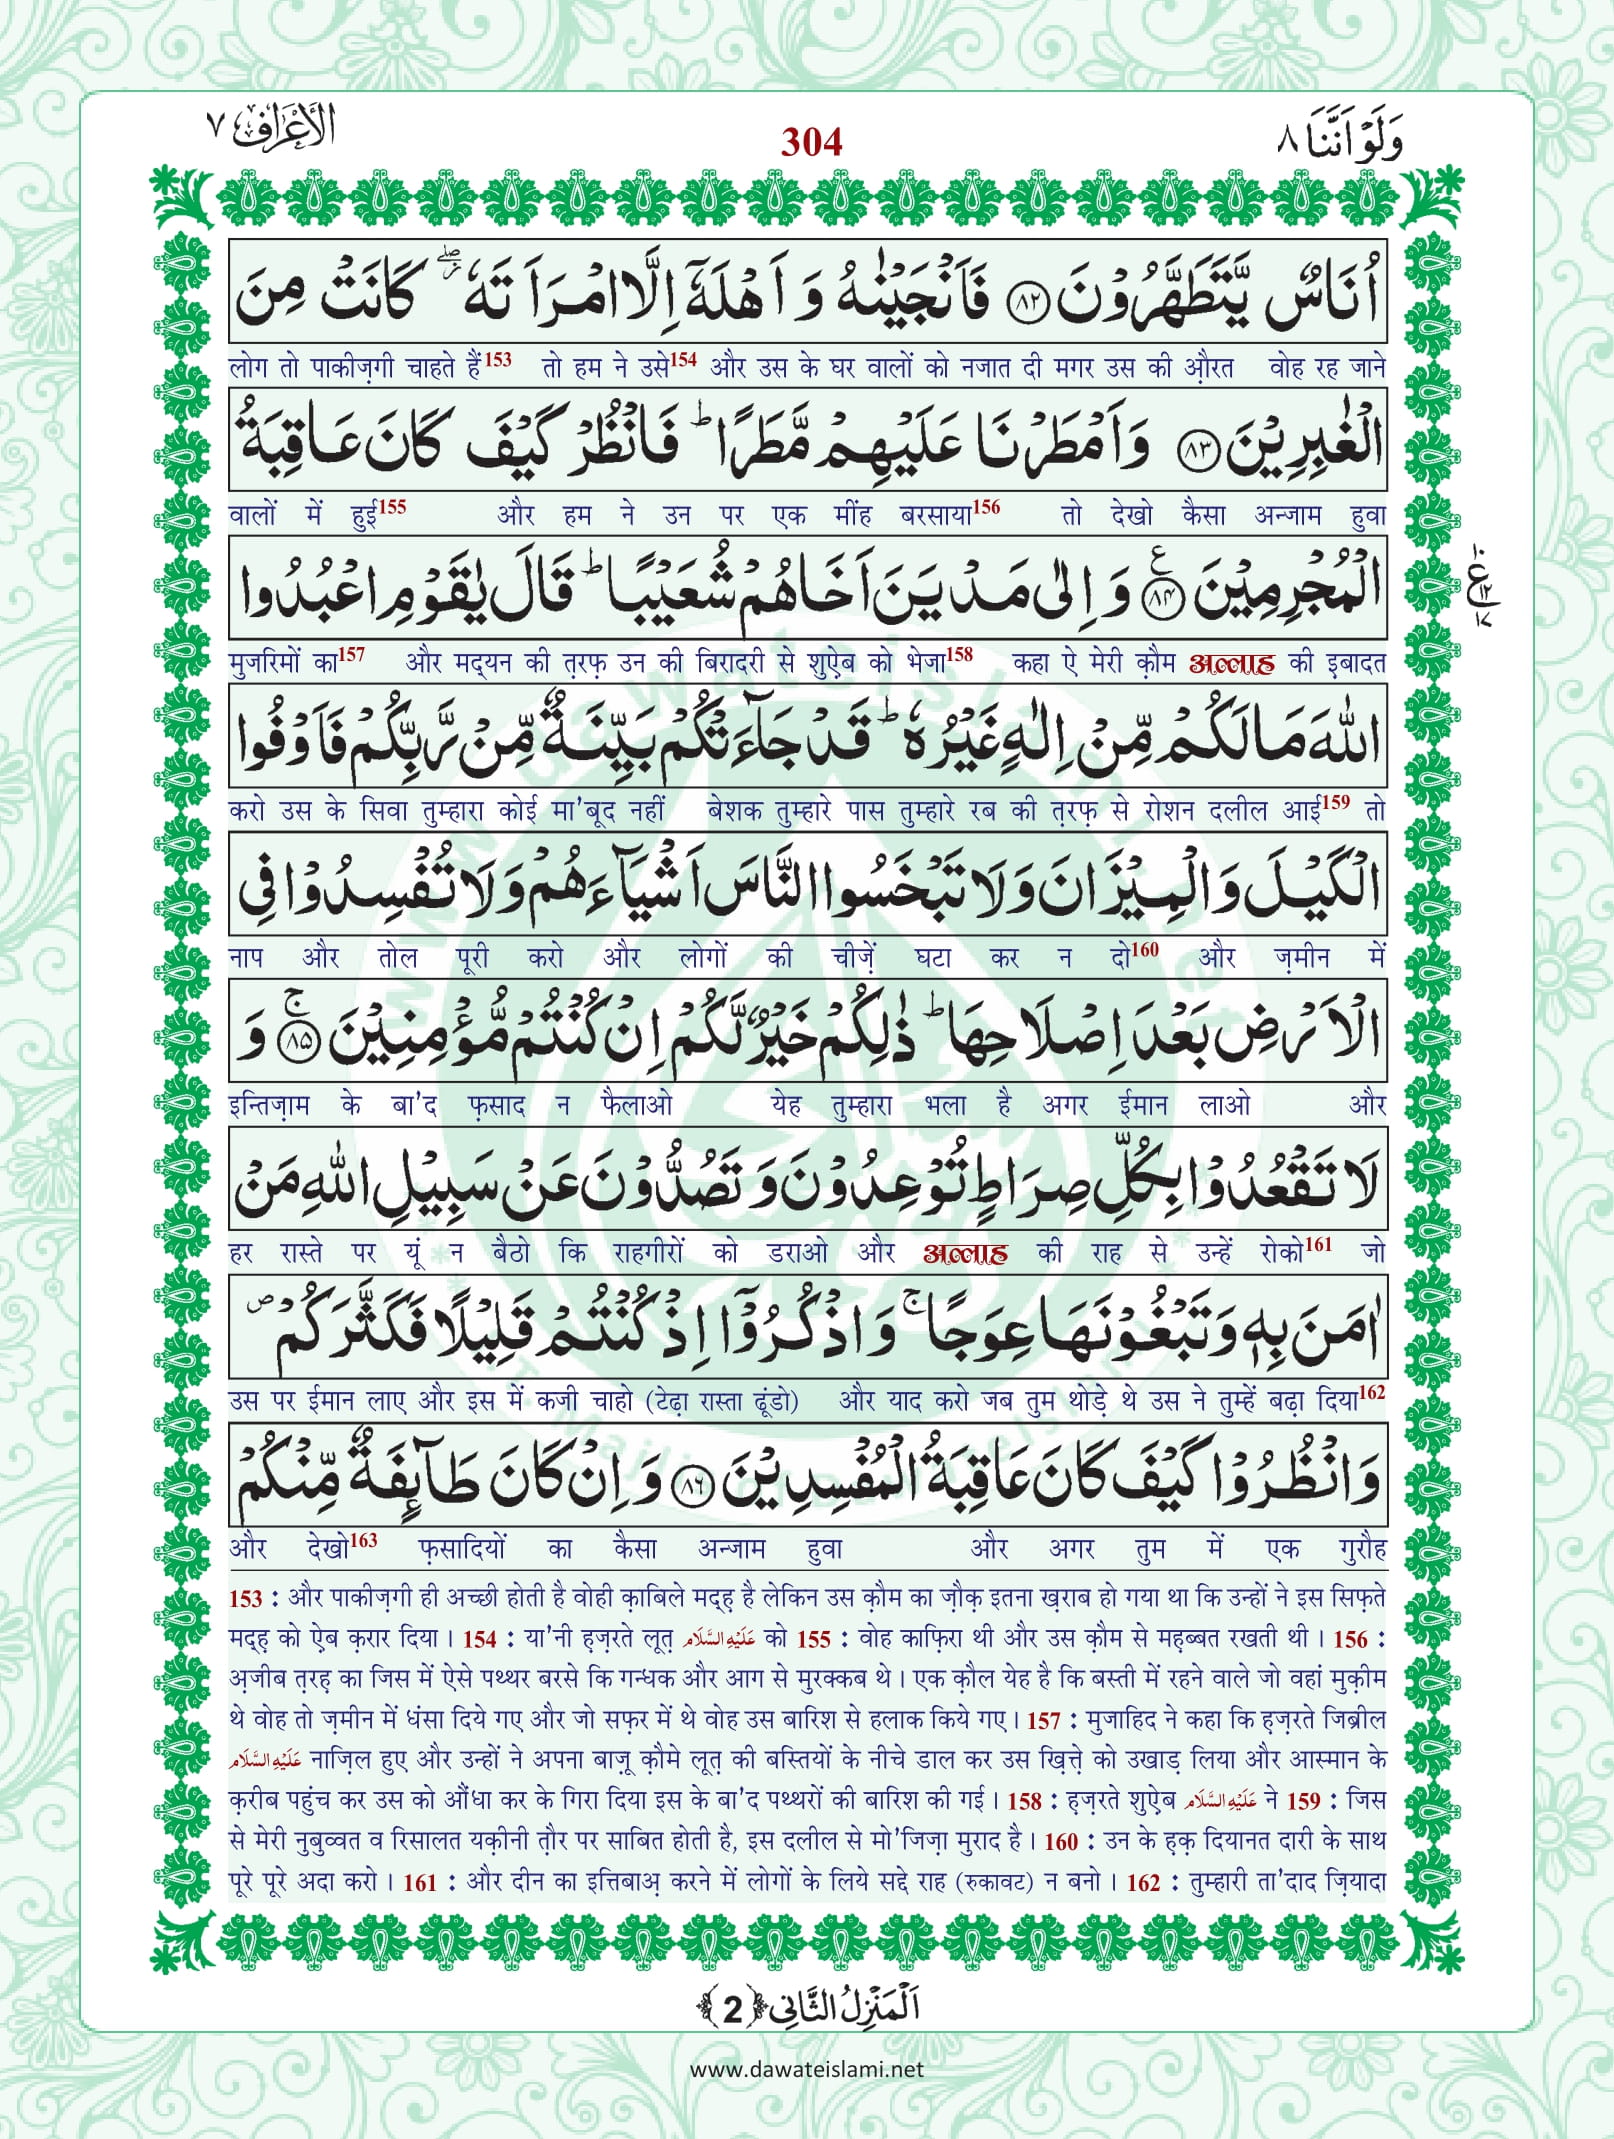 وَلَوْ اَنَّنَا ٨
304
الْاَعْرَاف ٧
اُنَاسٌ یَّتَطَهَّرُوْنَ ﴿۸۲﴾ فَاَنْجَیْنٰهُ وَ اَهْلَهٗۤ اِلَّا امْرَاَتَهٗ ۖ٘ كَانَتْ مِنَ
लोग तो पाकीज़गी चाहते हैं153 तो हम ने उसे154 और उस के घर वालों को नजात दी मगर उस की औ़रत वोह रह जाने
الْغٰبِرِیْنَ ﴿۸۳﴾ وَ اَمْطَرْنَا عَلَیْهِمْ مَّطَرًا ؕ فَانْظُرْ كَیْفَ كَانَ عَاقِبَةُ
वालों में हुई155 और हम ने उन पर एक मींह बरसाया156 तो देखो कैसा अन्जाम हुवा
الْمُجْرِمِیْنَ ﴿۸۴﴾ ع وَ اِلٰى مَدْیَنَ اَخَاهُمْ شُعَیْبًا ؕ قَالَ یٰقَوْمِ اعْبُدُوا
١٠ ع ١٢ ١٧
मुजरिमों का157 और मद्यन की त़रफ़ उन की बिरादरी से शुऐ़ब को भेजा158 कहा ऐ मेरी क़ौम अल्लाह की इ़बादत
اللّٰهَ مَا لَكُمْ مِّنْ اِلٰهٍ غَیْرُهٗ ؕ قَدْ جَآءَتْكُمْ بَیِّنَةٌ مِّنْ رَّبِّكُمْ فَاَوْفُوا
करो उस के सिवा तुम्हारा कोई मा'बूद नहीं बेशक तुम्हारे पास तुम्हारे रब की त़रफ़ से रोशन दलील आई159 तो
الْكَیْلَ وَ الْمِیْزَانَ وَ لَا تَبْخَسُوا النَّاسَ اَشْیَآءَهُمْ وَ لَا تُفْسِدُوْا فِی
नाप और तोल पूरी करो और लोगों की चीज़ें घटा कर न दो160 और ज़मीन में
الْاَرْضِ بَعْدَ اِصْلَاحِهَا ؕ ذٰلِكُمْ خَیْرٌ لَّكُمْ اِنْ كُنْتُمْ مُّؤْمِنِیْنَ ﴿ۚ۸۵﴾ وَ
इन्तिज़ाम के बा'द फ़साद न फैलाओ येह तुम्हारा भला है अगर ईमान लाओ और
لَا تَقْعُدُوْا بِكُلِّ صِرَاطٍ تُوْعِدُوْنَ وَ تَصُدُّوْنَ عَنْ سَبِیْلِ اللّٰهِ مَنْ
हर रास्ते पर यूं न बैठो कि राहगीरों को डराओ और अल्लाह की राह से उन्हें रोको161 जो
اٰمَنَ بِهٖ وَ تَبْغُوْنَهَا عِوَجًا ۚ وَ اذْكُرُوْۤا اِذْ كُنْتُمْ قَلِیْلًا فَكَثَّرَكُمْ ۪
उस पर ईमान लाए और इस में कजी चाहो (टेढ़ा रास्ता ढूंडो) और याद करो जब तुम थोड़े थे उस ने तुम्हें बढ़ा दिया162
وَ انْظُرُوْا كَیْفَ كَانَ عَاقِبَةُ الْمُفْسِدِیْنَ ﴿۸۶﴾ وَ اِنْ كَانَ طَآىٕفَةٌ مِّنْكُمْ
और देखो163 फ़सादियों का कैसा अन्जाम हुवा और अगर तुम में एक गुरौह
153 : और पाकीज़गी ही अच्छी होती है वोही क़ाबिले मद्ह़ है लेकिन उस क़ौम का ज़ौक़ इतना ख़राब हो गया था कि उन्हों ने इस सिफ़ते
मद्ह़ को ऐ़ब क़रार दिया । 154 : या'नी ह़ज़रते लूत़ عَلَيْهِ السَّلَام को 155 : वोह काफ़िरा थी और उस क़ौम से मह़ब्बत रखती थी । 156 :
अ़जीब त़रह़ का जिस में ऐसे पथ्थर बरसे कि गन्धक और आग से मुरक्कब थे । एक क़ौल येह है कि बस्ती में रहने वाले जो वहां मुक़ीम
थे वोह तो ज़मीन में धंसा दिये गए और जो सफ़र में थे वोह उस बारिश से हलाक किये गए । 157 : मुजाहिद ने कहा कि ह़ज़रते जिब्रील
عَلَيْهِ السَّلَام नाज़िल हुए और उन्हों ने अपना बाज़ू क़ौमे लूत़ की बस्तियों के नीचे डाल कर उस ख़ित़्त़े को उखाड़ लिया और आस्मान के
क़रीब पहुंच कर उस को औंधा कर के गिरा दिया इस के बा'द पथ्थरों की बारिश की गई । 158 : ह़ज़रते शुऐ़ब عَلَيْهِ السَّلَام ने 159 : जिस
से मेरी नुबुव्वत व रिसालत यक़ीनी त़ौर पर साबित होती है, इस दलील से मो'जिज़ा मुराद है । 160 : उन के ह़क़ दियानत दारी के साथ
पूरे पूरे अदा करो । 161 : और दीन का इत्तिबाअ़ करने में लोगों के लिये सद्दे राह (रुकावट) न बनो । 162 : तुम्हारी ता'दाद ज़ियादा
اَلْمَنْزِلُ الثَّانِي ﴿2﴾
www.dawateislami.net